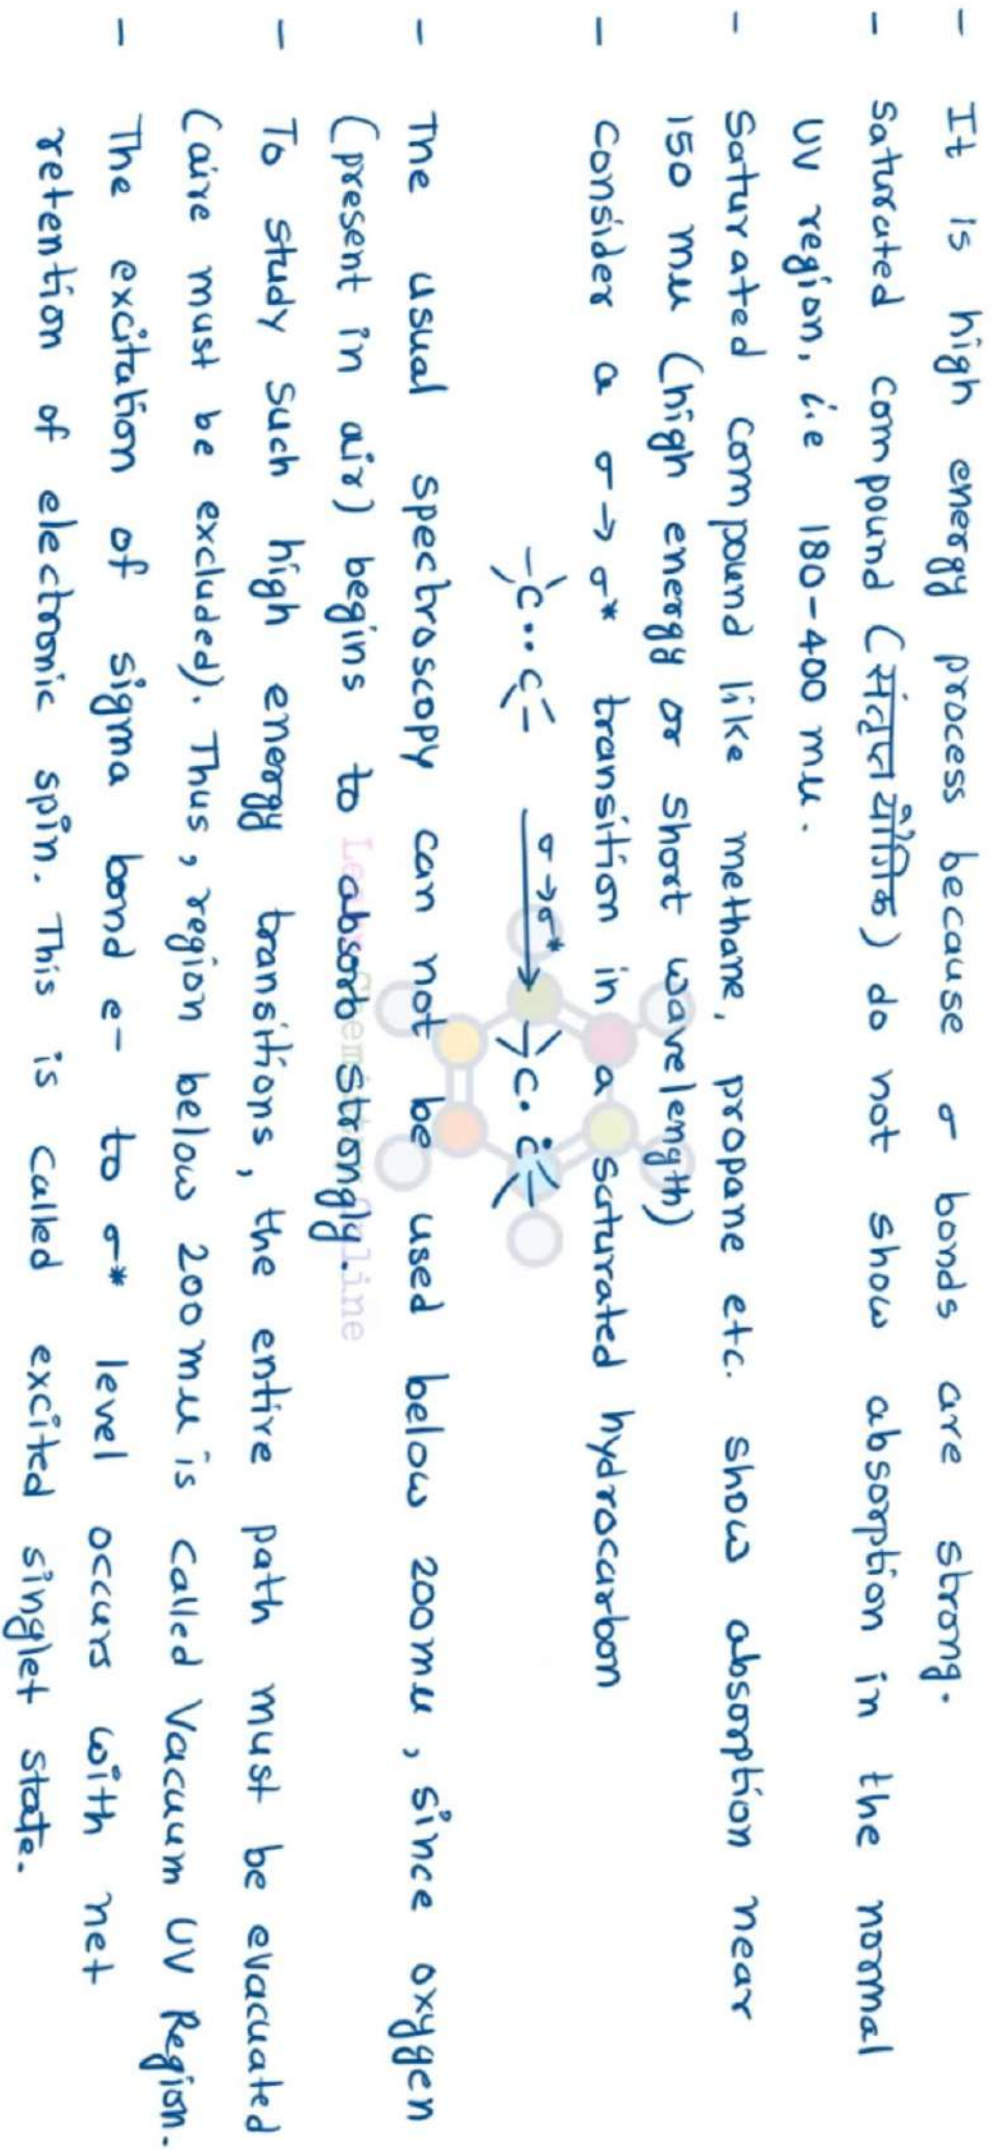 - It is high energy process because σ bonds are strong.
- Saturated compound (संतृप्त यौगिक) do not show absorption in the normal
UV region, i.e 180-400 mμ.
- Saturated compound like methane, propane etc. show absorption near
150 mμ (high energy or short wavelength)
- Consider a σ→σ* transition in a saturated hydrocarbon
-C··C- σ→σ* -C· C-
- The usual spectroscopy can not be used below 200mμ, since oxygen
(present in air) begins to absorb strongly.
Learn Chemistry Online
- To study such high energy transitions, the entire path must be evacuated
(aire must be excluded). Thus, region below 200 mμ is called Vacuum UV Region.
- The excitation of sigma bond e- to σ* level occurs with net
retention of electronic spin. This is called excited singlet state.